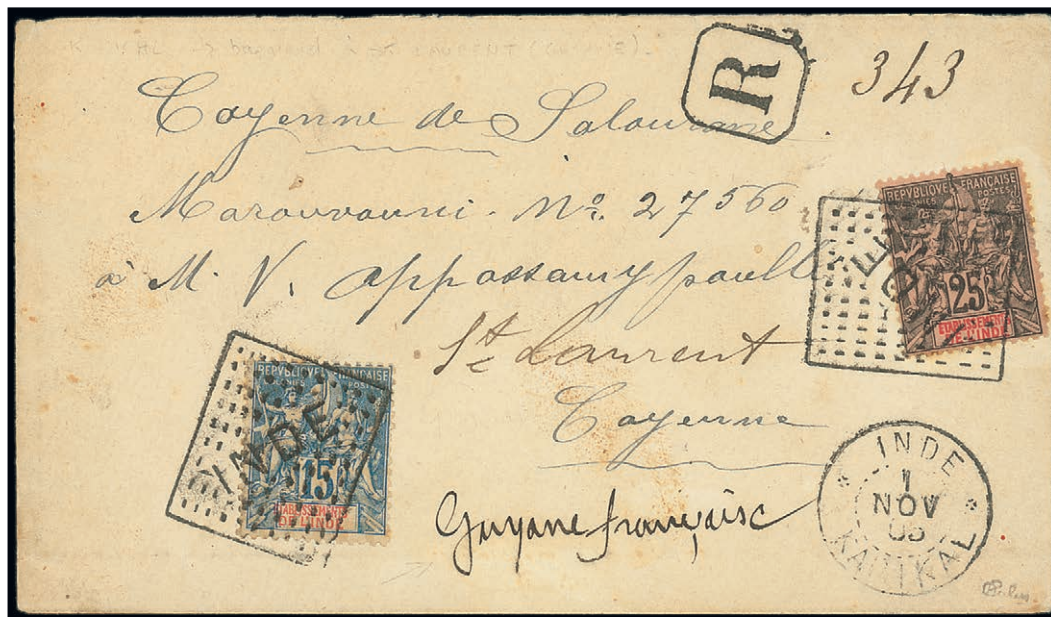 à St LAURENT
R
343
Cayenne de
Marouvouni. No. 27560
à M. V. Appassamypoullé
St. Laurent
Cayenne
Guyane française
REPVBLIQVE FRANÇAISE
COLONIES POSTES
25
ETABLISSEMENTS
DE L'INDE
REPVBLIQVE FRANÇAISE
COLONIES POSTES
15
ETABLISSEMENTS
DE L'INDE
INDE
INDE
1
NOV
KARIKAL